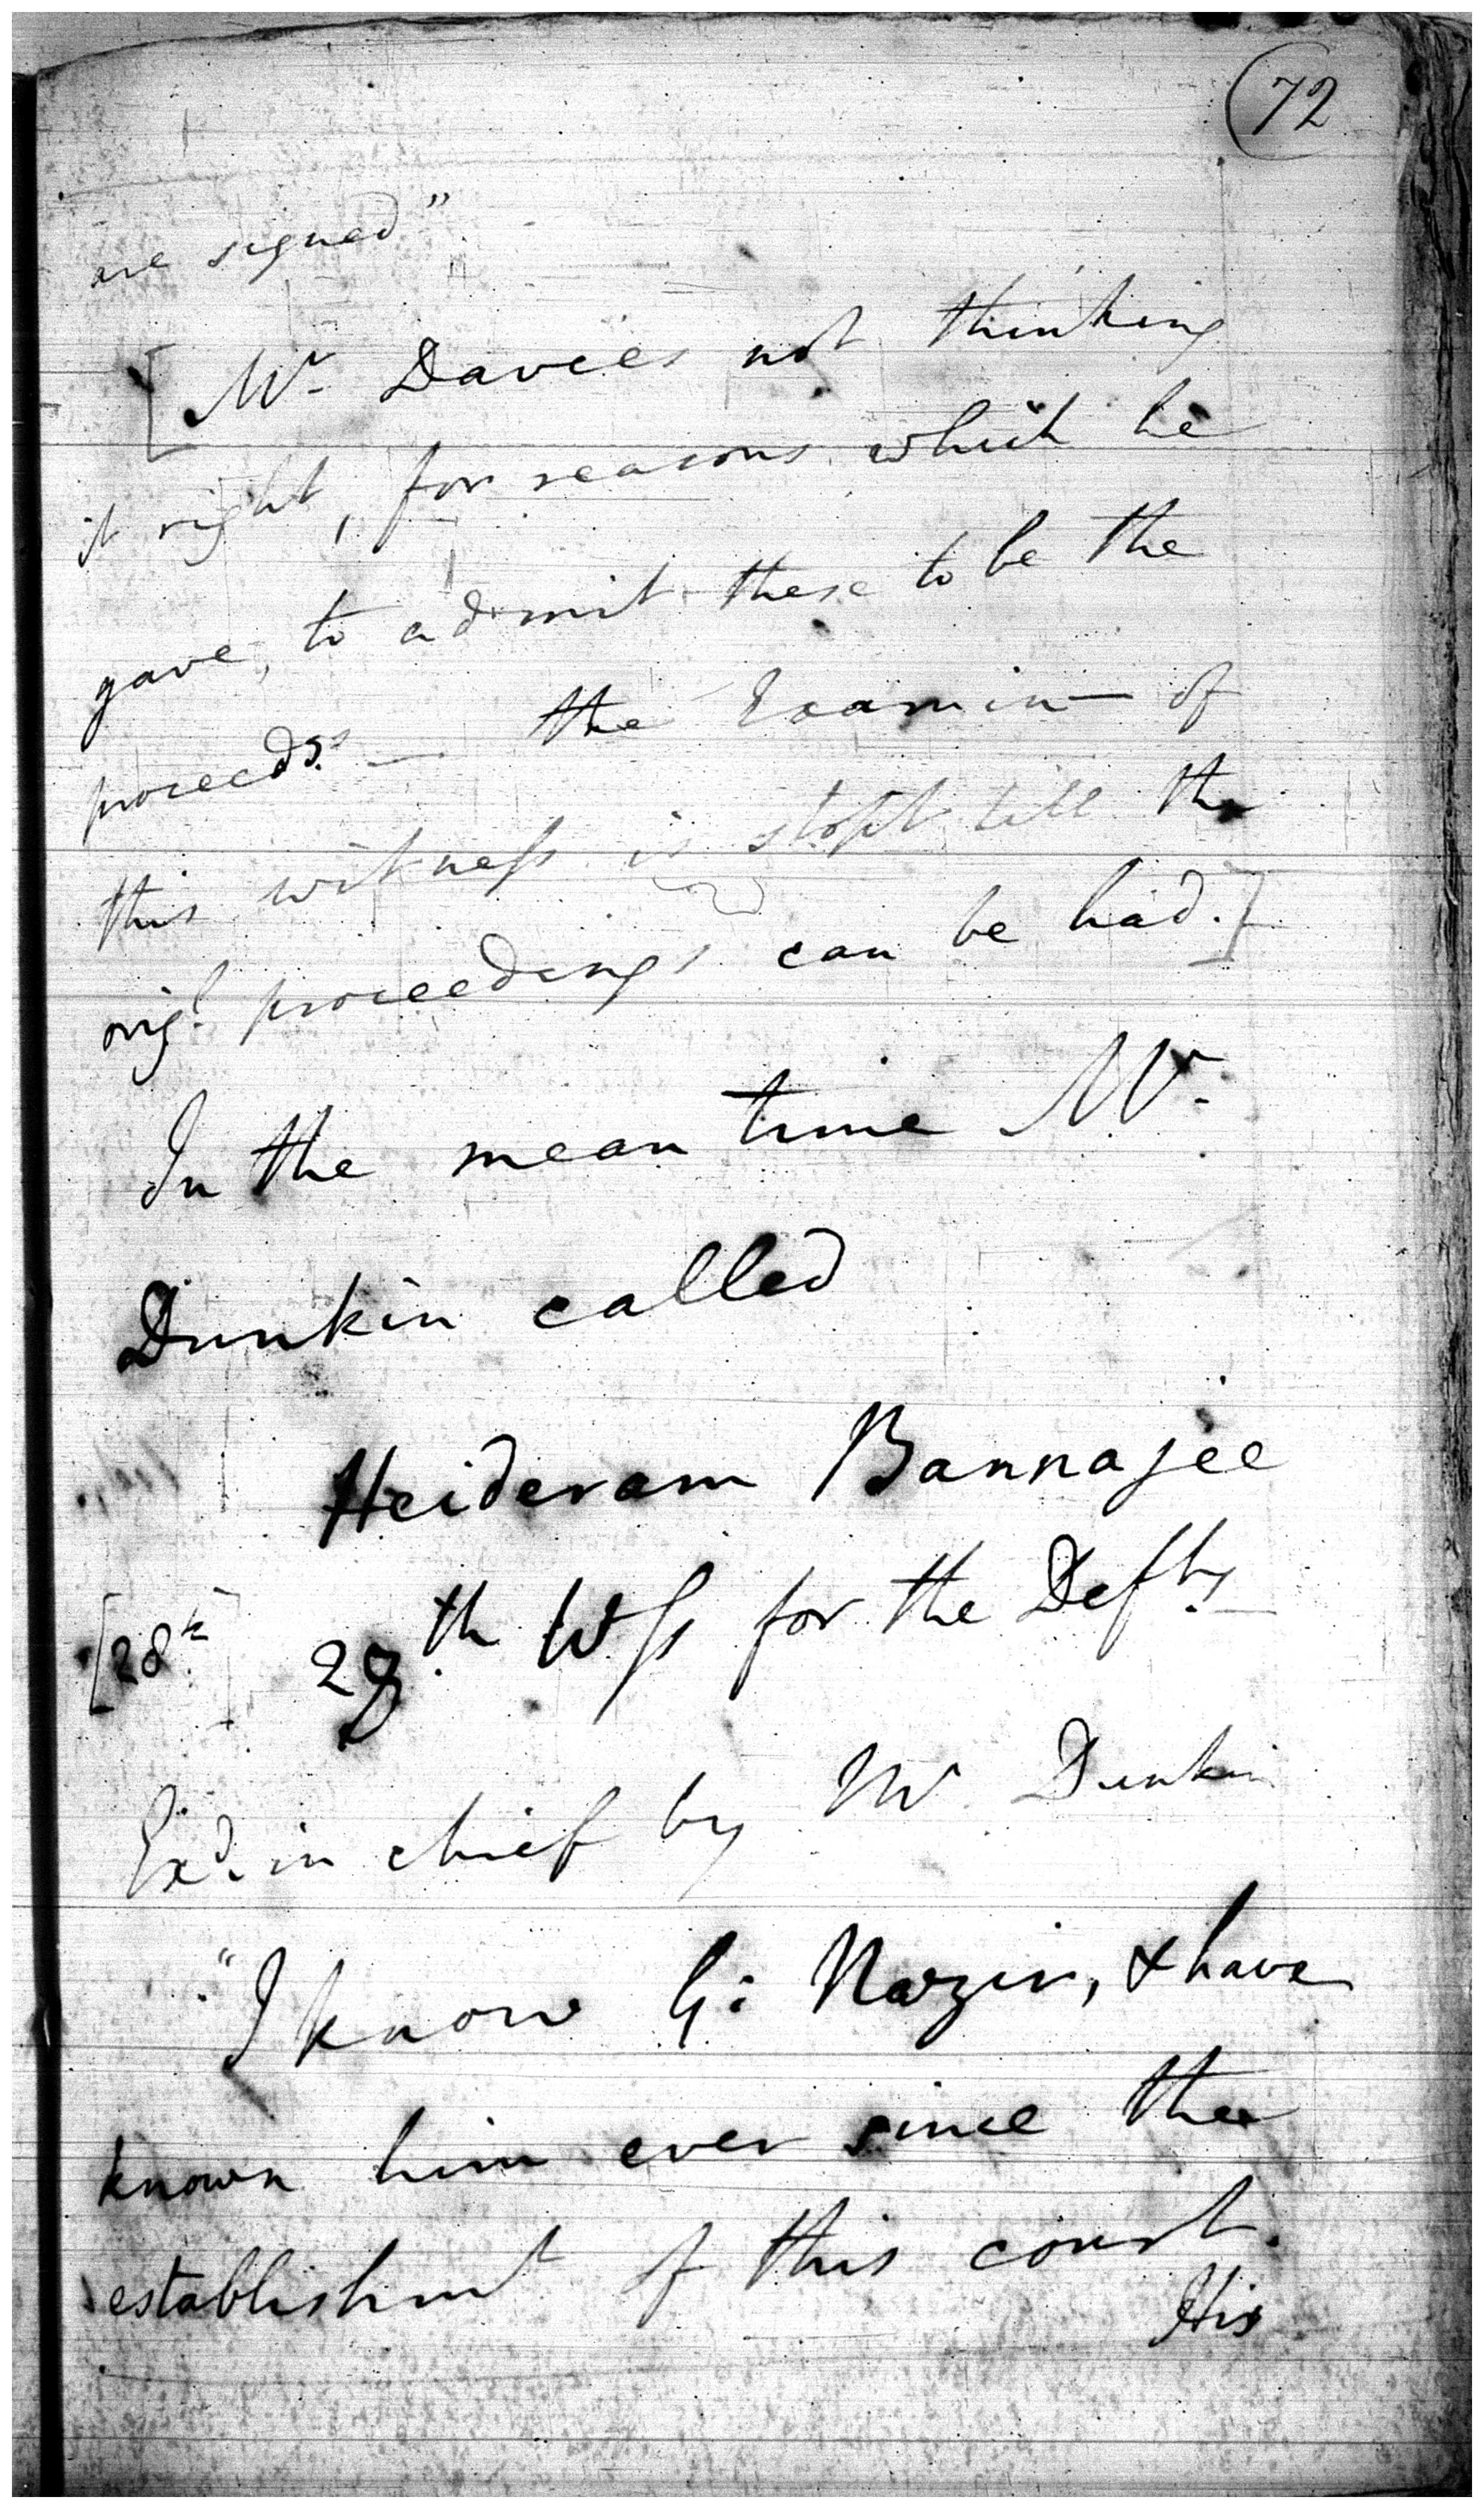 (72
are signed"
[Mr. Davies not thinking
it right, for reasons which he
gave, to admit these to be the
proceeds. — the Examin— of
this witness is stopt till the
origl. proceedings can be had.]
In the mean time Mr.
Dunkin called
Heideram Bannajee
[28th] 28th. Wss for the Defts.
Exd. in chief by Mr. Dunkin
"I know G: Nazir, & have
known him ever since the
establishmt of this court.
His